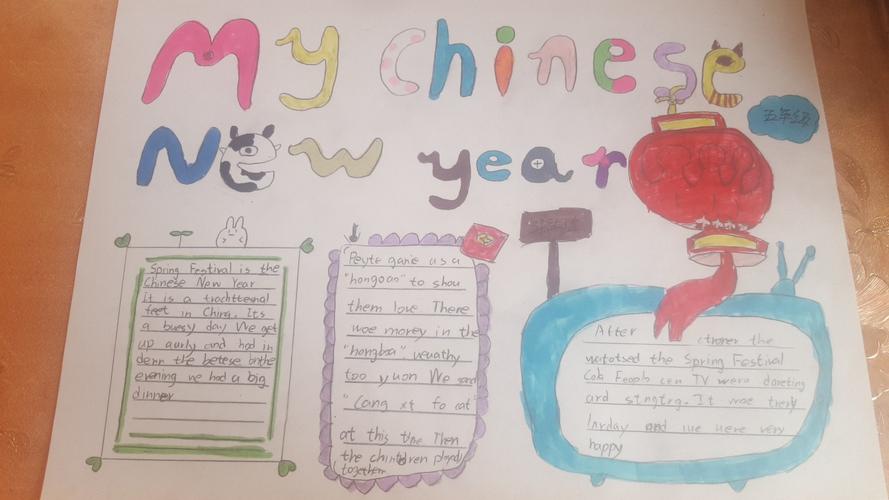 My Chinese
New year
五年级
Spring Festival is the
Chinese New Year
It is a trachtternal
feet in China. Its
a buesy day We get
up aurly and had in
denn the betese
evening we had a big
dinner
Peyte gave us a
"hongoao" to shou
them love There
woe morey in the
"hongbao"
too yuon We
"Cang xt fo cat"
at this time Then
the children played
together
After the
the Spring Festival
TV were daneting
and stngtng. It woe
and we were very
happy